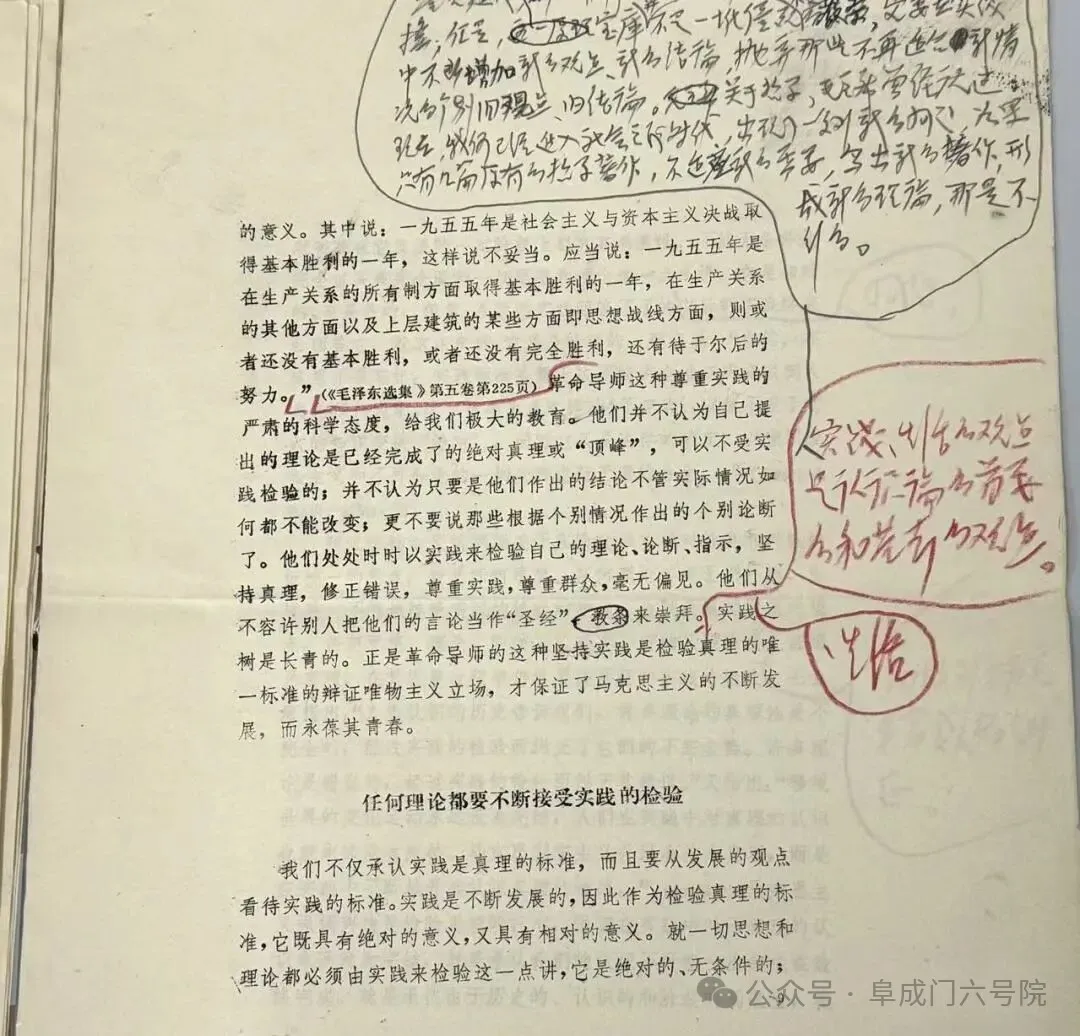 中不断增加新的观点、新的结论，抛弃那些不再适合新情
况的个别旧观点、旧结论。关于哲学，毛主席曾经说过，
现在，我们已经进入社会主义时代，出现了一系列新的问题，如果
只有几篇原有的哲学著作，不适应新的需要，写出新的著作，形
成新的理论，那是不
行的。
的意义。其中说：一九五五年是社会主义与资本主义决战取
得基本胜利的一年，这样说不妥当。应当说：一九五五年是
在生产关系的所有制方面取得基本胜利的一年，在生产关系
的其他方面以及上层建筑的某些方面即思想战线方面，则或
者还没有基本胜利，或者还没有完全胜利，还有待于尔后的
努力。”(《毛泽东选集》第五卷第225页) 革命导师这种尊重实践的
严肃的科学态度，给我们极大的教育。他们并不认为自己提
出的理论是已经完成了的绝对真理或“顶峰”，可以不受实
践检验的；并不认为只要是他们作出的结论不管实际情况如
何都不能改变；更不要说那些根据个别情况作出的个别论断
了。他们处处时时以实践来检验自己的理论、论断、指示，坚
持真理，修正错误，尊重实践，尊重群众，毫无偏见。他们从
不容许别人把他们的言论当作“圣经” 教条来崇拜。实践之
树是长青的。正是革命导师的这种坚持实践是检验真理的唯
一标准的辩证唯物主义立场，才保证了马克思主义的不断发
展，而永葆其青春。
实践、生活的观点
是认识论的首要
的和基本的观点。
生活
任何理论都要不断接受实践的检验
我们不仅承认实践是真理的标准，而且要从发展的观点
看待实践的标准。实践是不断发展的，因此作为检验真理的标
准，它既具有绝对的意义，又具有相对的意义。就一切思想和
理论都必须由实践来检验这一点讲，它是绝对的、无条件的；
9
公众号·阜成门六号院